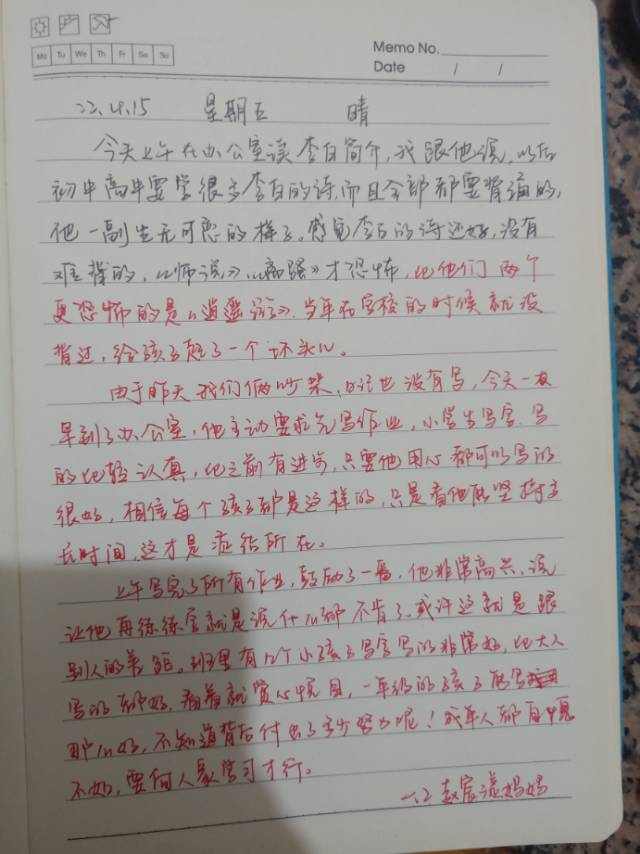 Memo No.
Mo Tu We Th Fr Sa Su
Date / /
22.4.15 星期五 晴
今天上午在办公室读李白简介,我跟他说,以后
初中高中要学很多李白的诗,而且全部都要背诵的,
他一副生无可恋的样子。感觉李白的诗还好,没有
难背的,《师说》《离骚》才恐怖,比他们两个
更恐怖的是《逍遥游》。当年在学校的时候就没
背过,给孩子起了一个坏头儿。
由于昨天我们俩吵架,日记也没有写,今天一大
早到了办公室,他主动要求先写作业,小学生写字,写
的比较认真,比之前有进步,只要他用心都可以写的
很好,相信每个孩子都是这样的,只是看他能坚持多
长时间,这才是症结所在。
上午写完了所有作业,鼓励了一番,他非常高兴,说
让他再练练字就是说什么都不肯了。或许这就是跟
别人的差距。班里有几个小孩子写字写的非常好,比大人
写的都好,看着就赏心悦目,一年级的孩子能写
那么好,不知道背后付出了多少努力呢!成年人都自愧
不如,要向人家学习才行。
一.2 赵宸漾妈妈